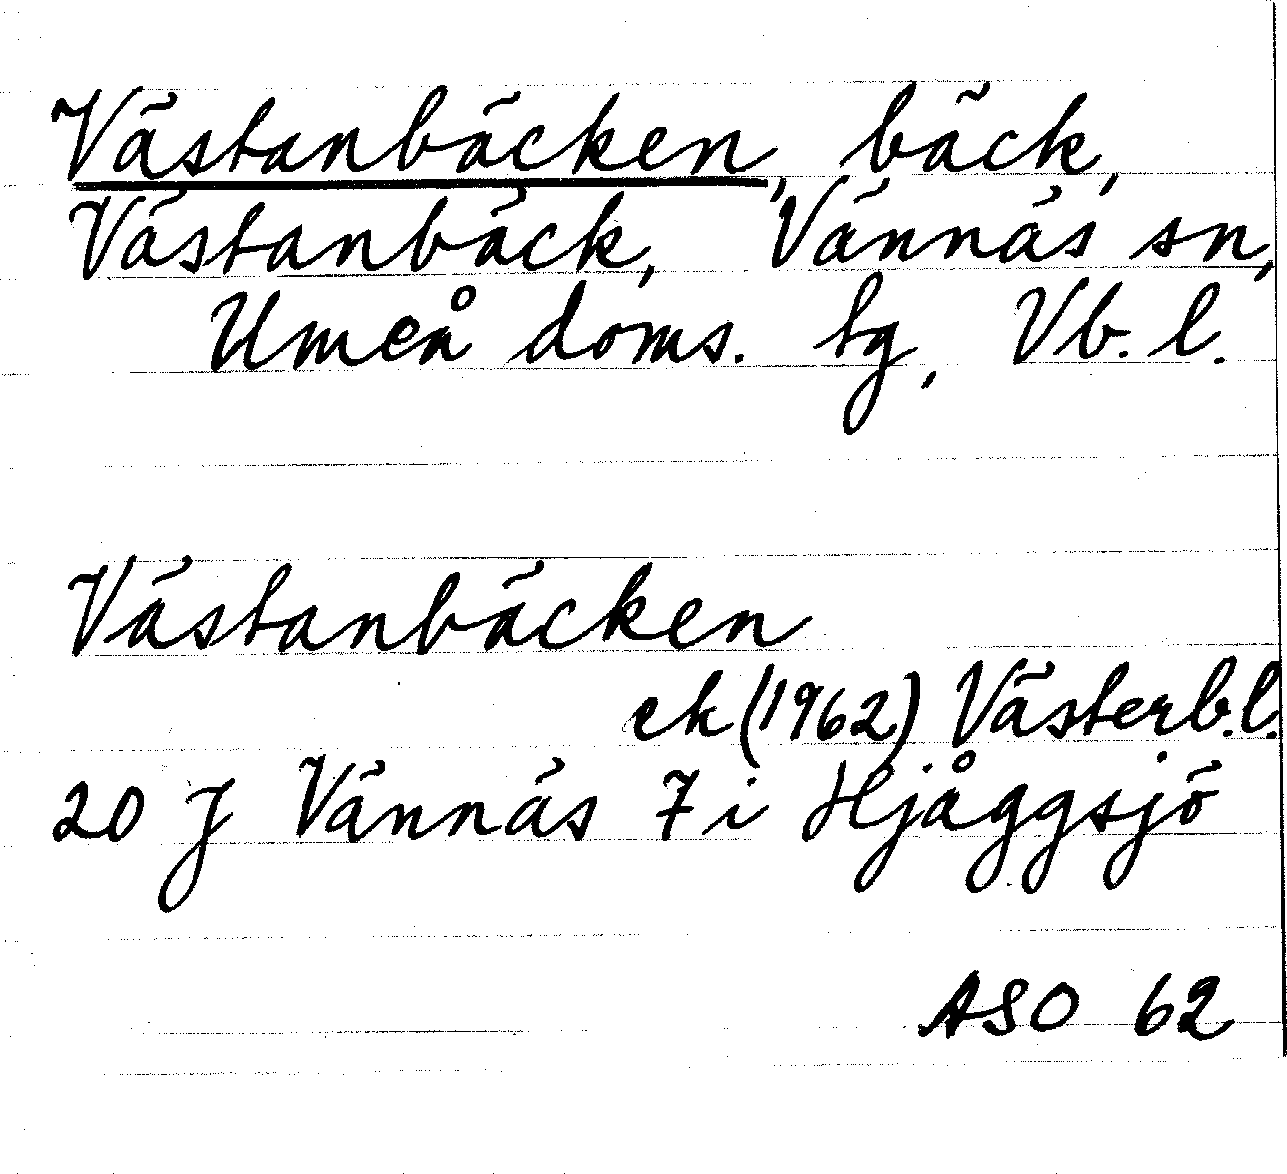 Västanbäcken, bäck,
Västanbäck, Vännäs sn,
Umeå doms. tg, Vb. l.
Västanbäcken
ek (1962) Västerb.l.
20 J Vännäs 7 i Hjåggsjö
ASO 62